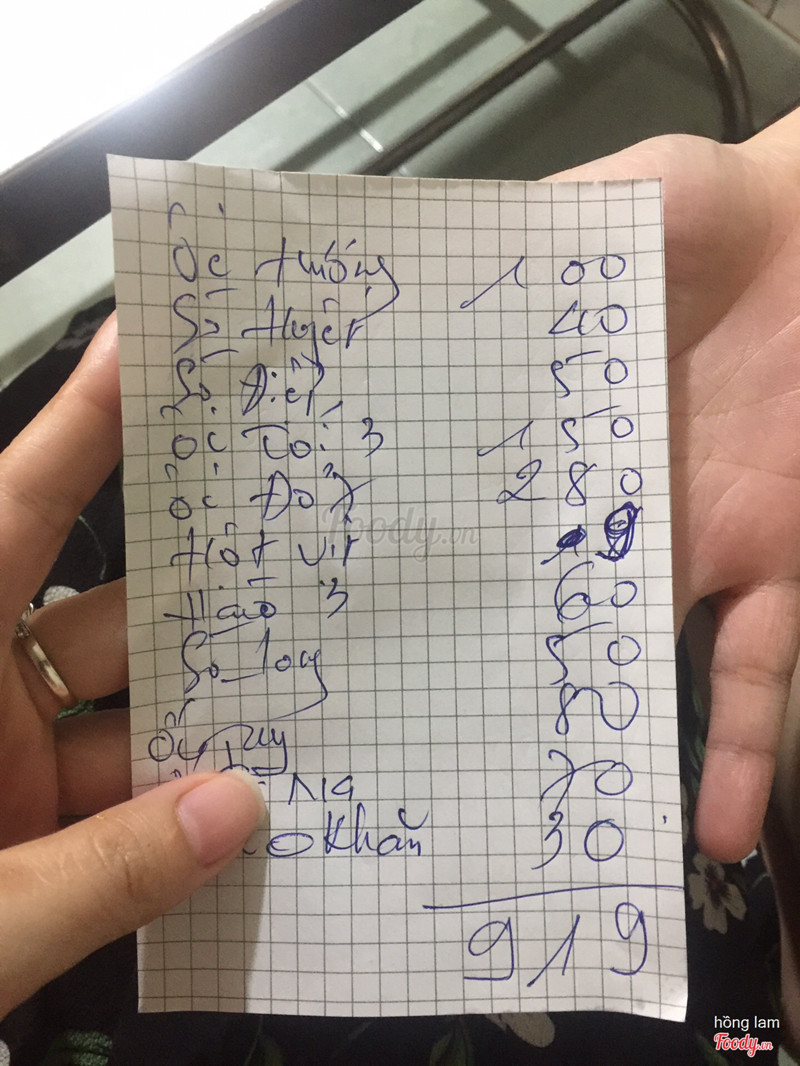 Ốc hương 100
Sò Huyết 40
Sò Điệp 50
Ốc Tỏi 3 150
Ốc Đỏ 280
Hột vịt 9
Hào 3 60
Sò long 50
Ốc 80
70
Khăn 30
919
Foody.vn
hồng lam
Foody.vn